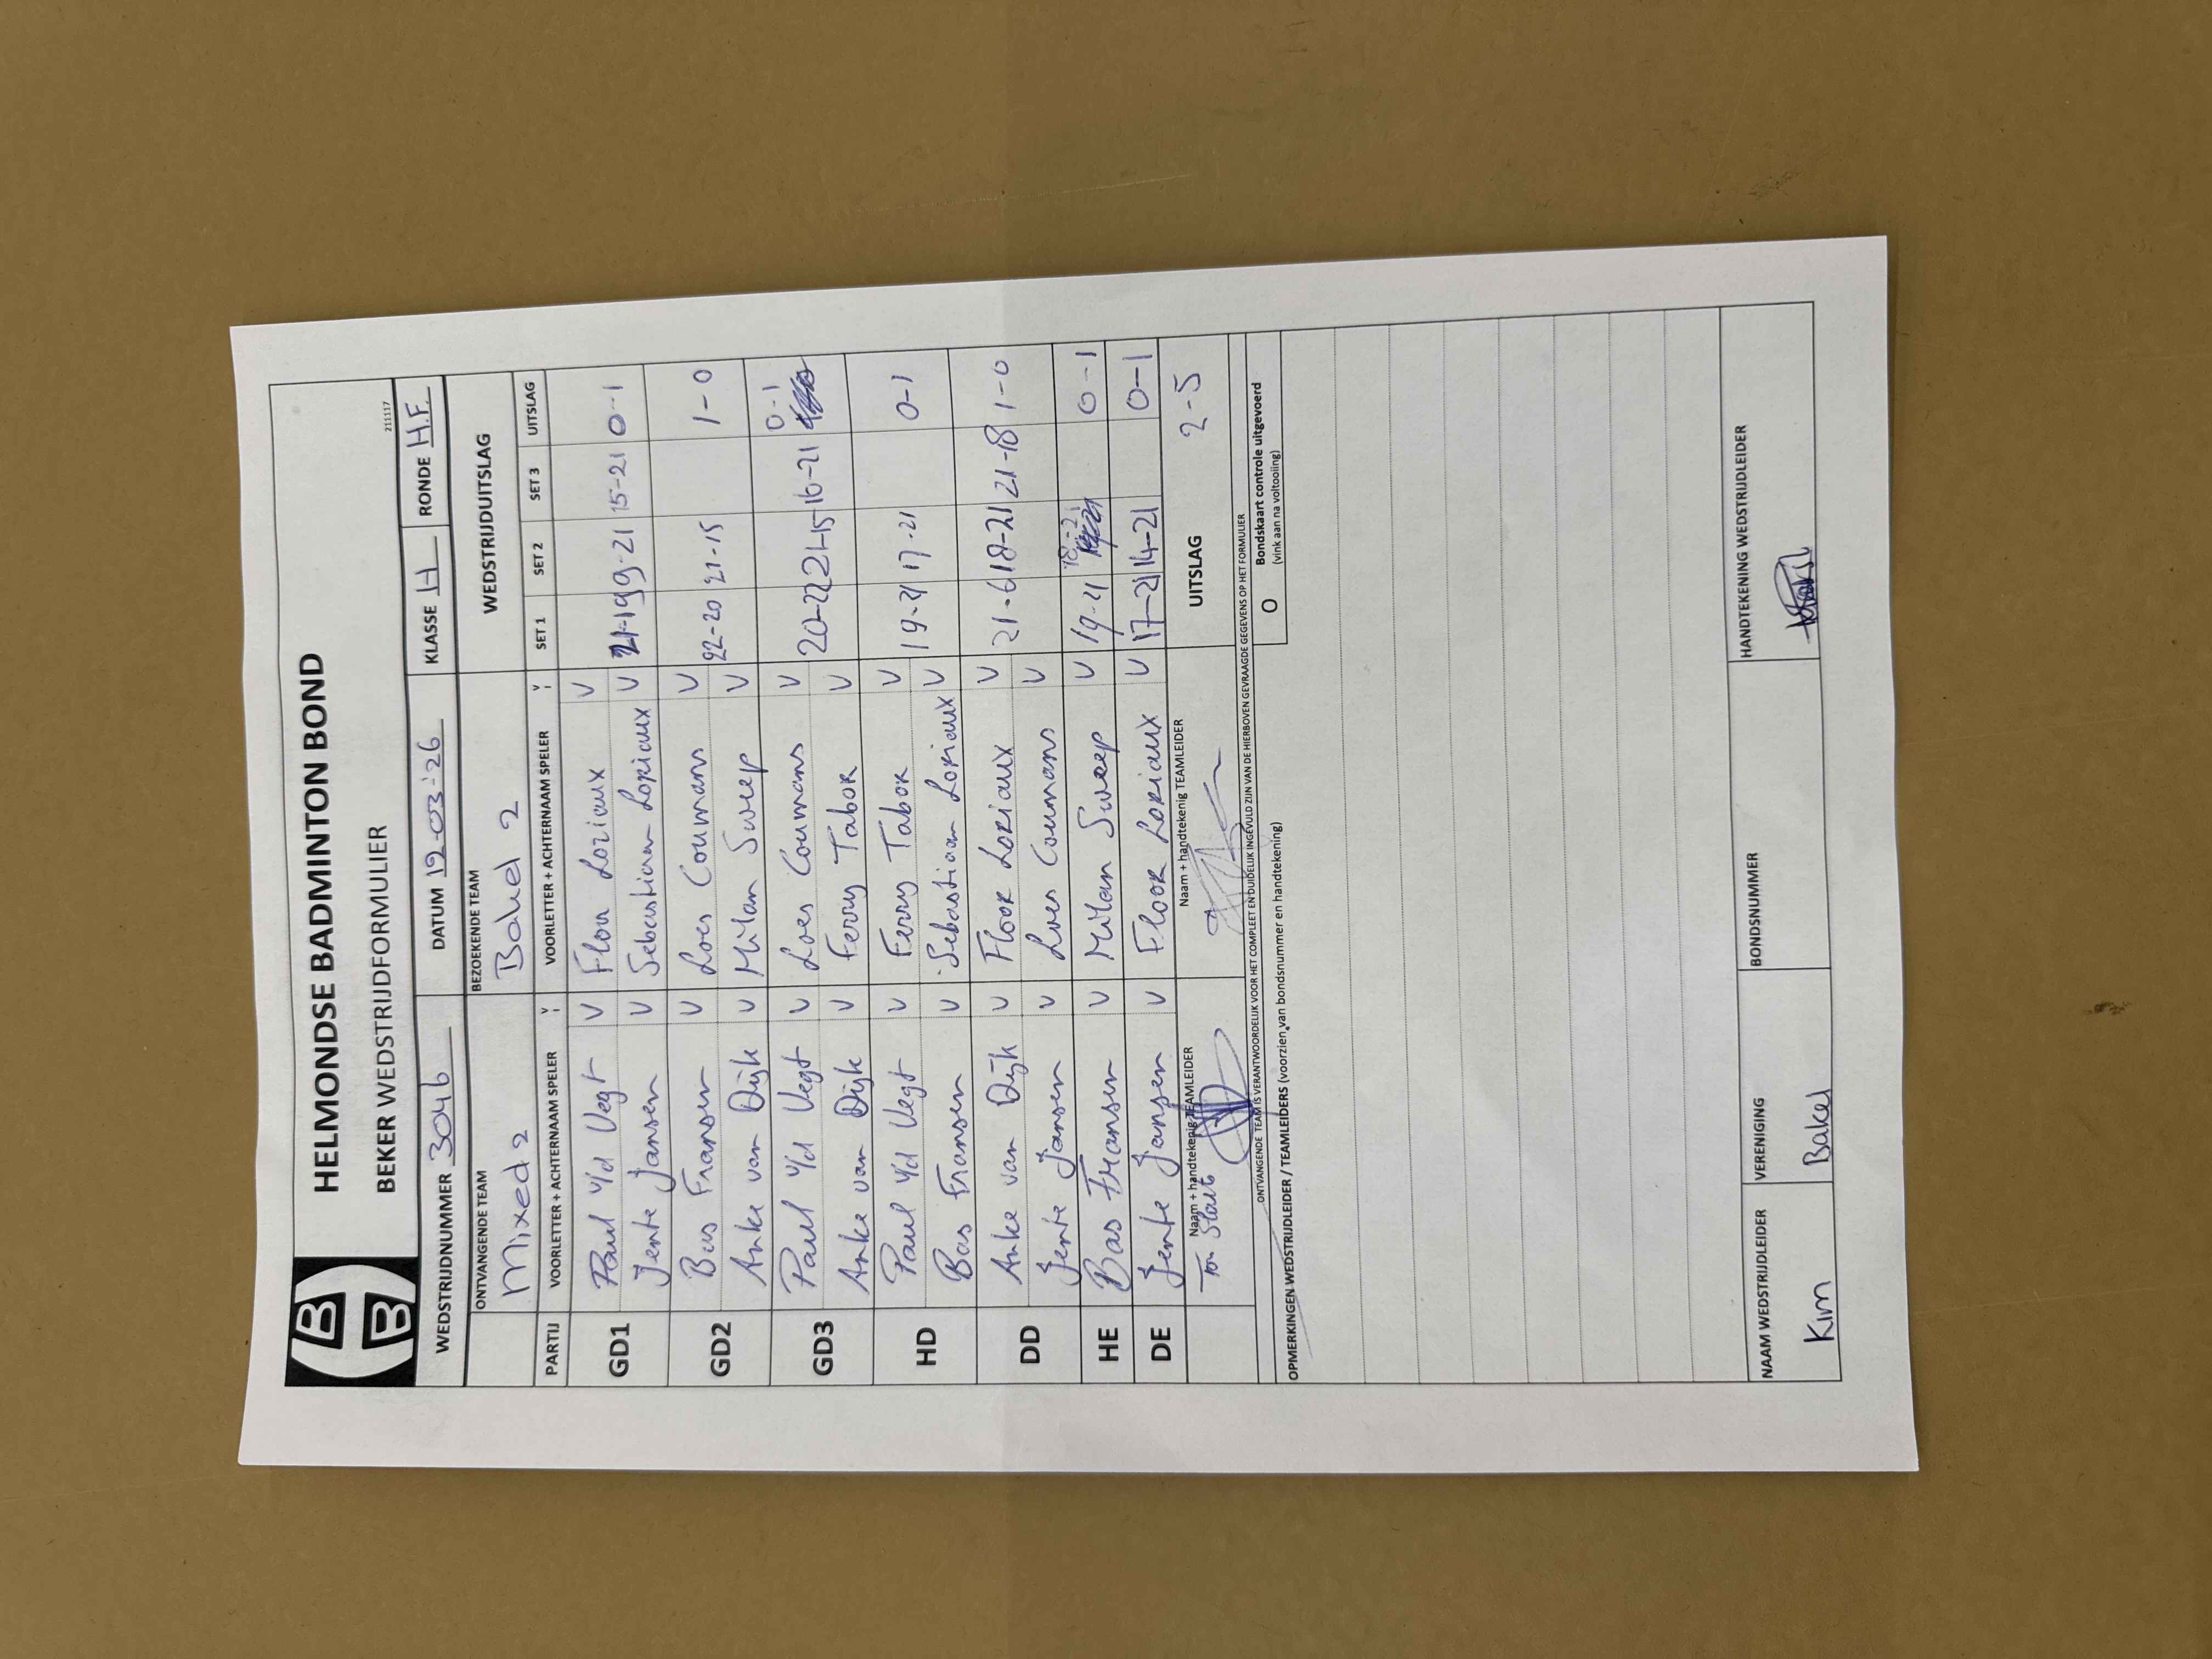 HELMONDSE BADMINTON BOND
BEKER WEDSTRIJDFORMULIER
211117
WEDSTRIJDNUMMER 3046 DATUM 19-03-'26 KLASSE H RONDE H.F.
ONTVANGENDE TEAM BEZOEKENDE TEAM WEDSTRIJDUITSLAG
Mixed 2 Bakel 2
PARTIJ VOORLETTER + ACHTERNAAM SPELER V VOORLETTER + ACHTERNAAM SPELER V SET 1 SET 2 SET 3 UITSLAG
Paul v/d Vegt V Floor Loriaux V
GD1 21-19 9-21 15-21 0-1
Jente Jansen V Sebastiaan Loriaux V
Bas Fransen V Loes Coumans V
GD2 22-20 21-15 1-0
Anke van Dijk V Milan Sweep V
Paul v/d Vegt V Loes Coumans V 0-1
GD3 20-22 21-15 16-21
Anke van Dijk V Ferry Tabor V
Paul v/d Vegt V Ferry Tabor V
HD 19-21 17-21 0-1
Bas Fransen V Sebastiaan Loriaux V
Anke van Dijk V Floor Loriaux V
DD 21-6 18-21 21-18 1-0
Jente Jansen V Loes Coumans V
HE Bas Fransen V Milan Sweep V 19-21 18-21 0-1
DE Jente Jansen V Floor Loriaux V 17-21 14-21 0-1
Naam + handtekenig TEAMLEIDER Naam + handtekenig TEAMLEIDER UITSLAG 2-5
Ton Slaats
ONTVANGENDE TEAM IS VERANTWOORDELIJK VOOR HET COMPLEET EN DUIDELIJK INGEVULD ZIJN VAN DE HIERBOVEN GEVRAAGDE GEGEVENS OP HET FORMULIER
OPMERKINGEN WEDSTRIJDLEIDER / TEAMLEIDERS (voorzien van bondsnummer en handtekening)
O Bondskaart controle uitgevoerd
(vink aan na voltooiing)
NAAM WEDSTRIJDLEIDER VERENIGING BONDSNUMMER HANDTEKENING WEDSTRIJDLEIDER
Kim Bakel